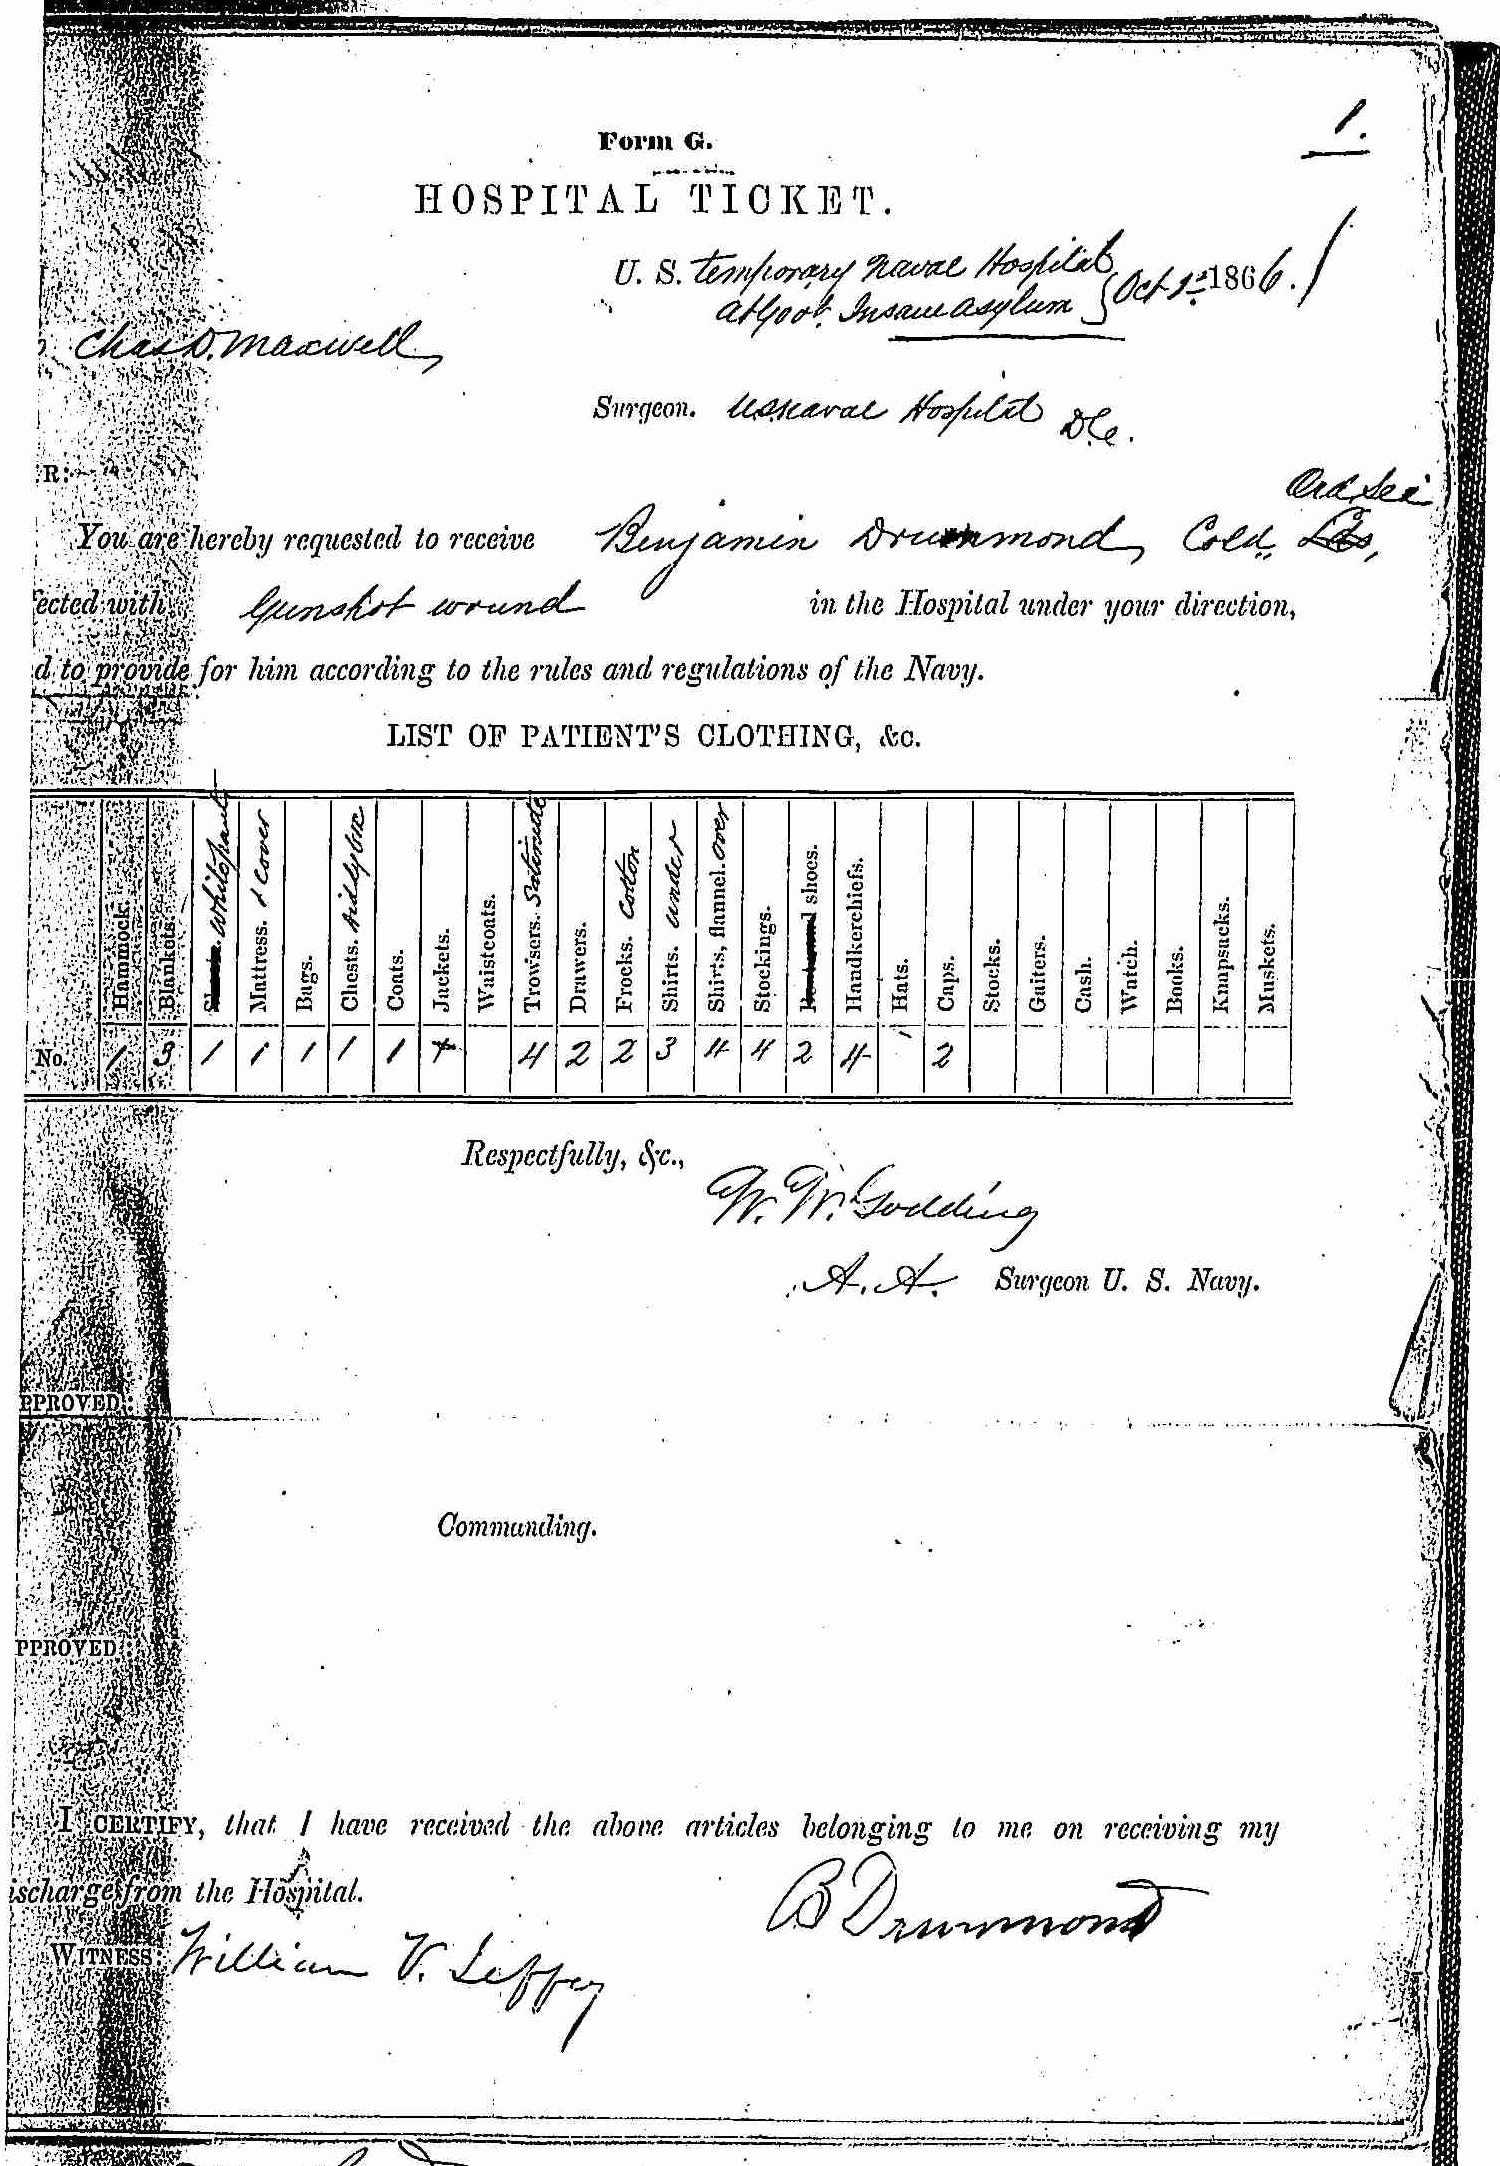 1.
Form G.
HOSPITAL TICKET.
U. S. temporary Naval Hospital
at Govt. Insane Asylum } Oct 1st 1866.
Chas D. Maxwell,
Surgeon. U.S. Naval Hospital D.C.
R:
Ord. Sea
You are hereby requested to receive Benjamin Drummond, Cold.,
ected with Gunshot wound in the Hospital under your direction,
d to provide for him according to the rules and regulations of the Navy.
LIST OF PATIENT'S CLOTHING, &c.
Hammock. Blankets. white pants Mattress. & cover Bags. Chests. diddy box Coats. Jackets. Waistcoats. Trowsers. Satinette Drawers. Frocks. Cotton Shirts. under Shirts, flannel. over Stockings. shoes. Handkerchiefs. Hats. Caps. Stocks. Gaiters. Cash. Watch. Books. Knapsacks. Muskets.
No. 1 3 1 1 1 1 1 4 2 2 3 4 4 2 4 2
Respectfully, &c.,
W. W. Godding
A. A. Surgeon U. S. Navy.
PPROVED:
Commanding.
PPROVED:
I CERTIFY, that I have received the above articles belonging to me on receiving my
ischarge from the Hospital.
B Drummond
WITNESS: William V.